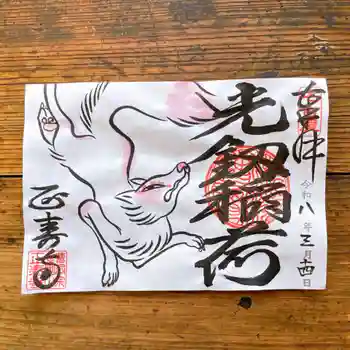 奉拝
令和八年三月十四日
光剱稲荷
正寿寺